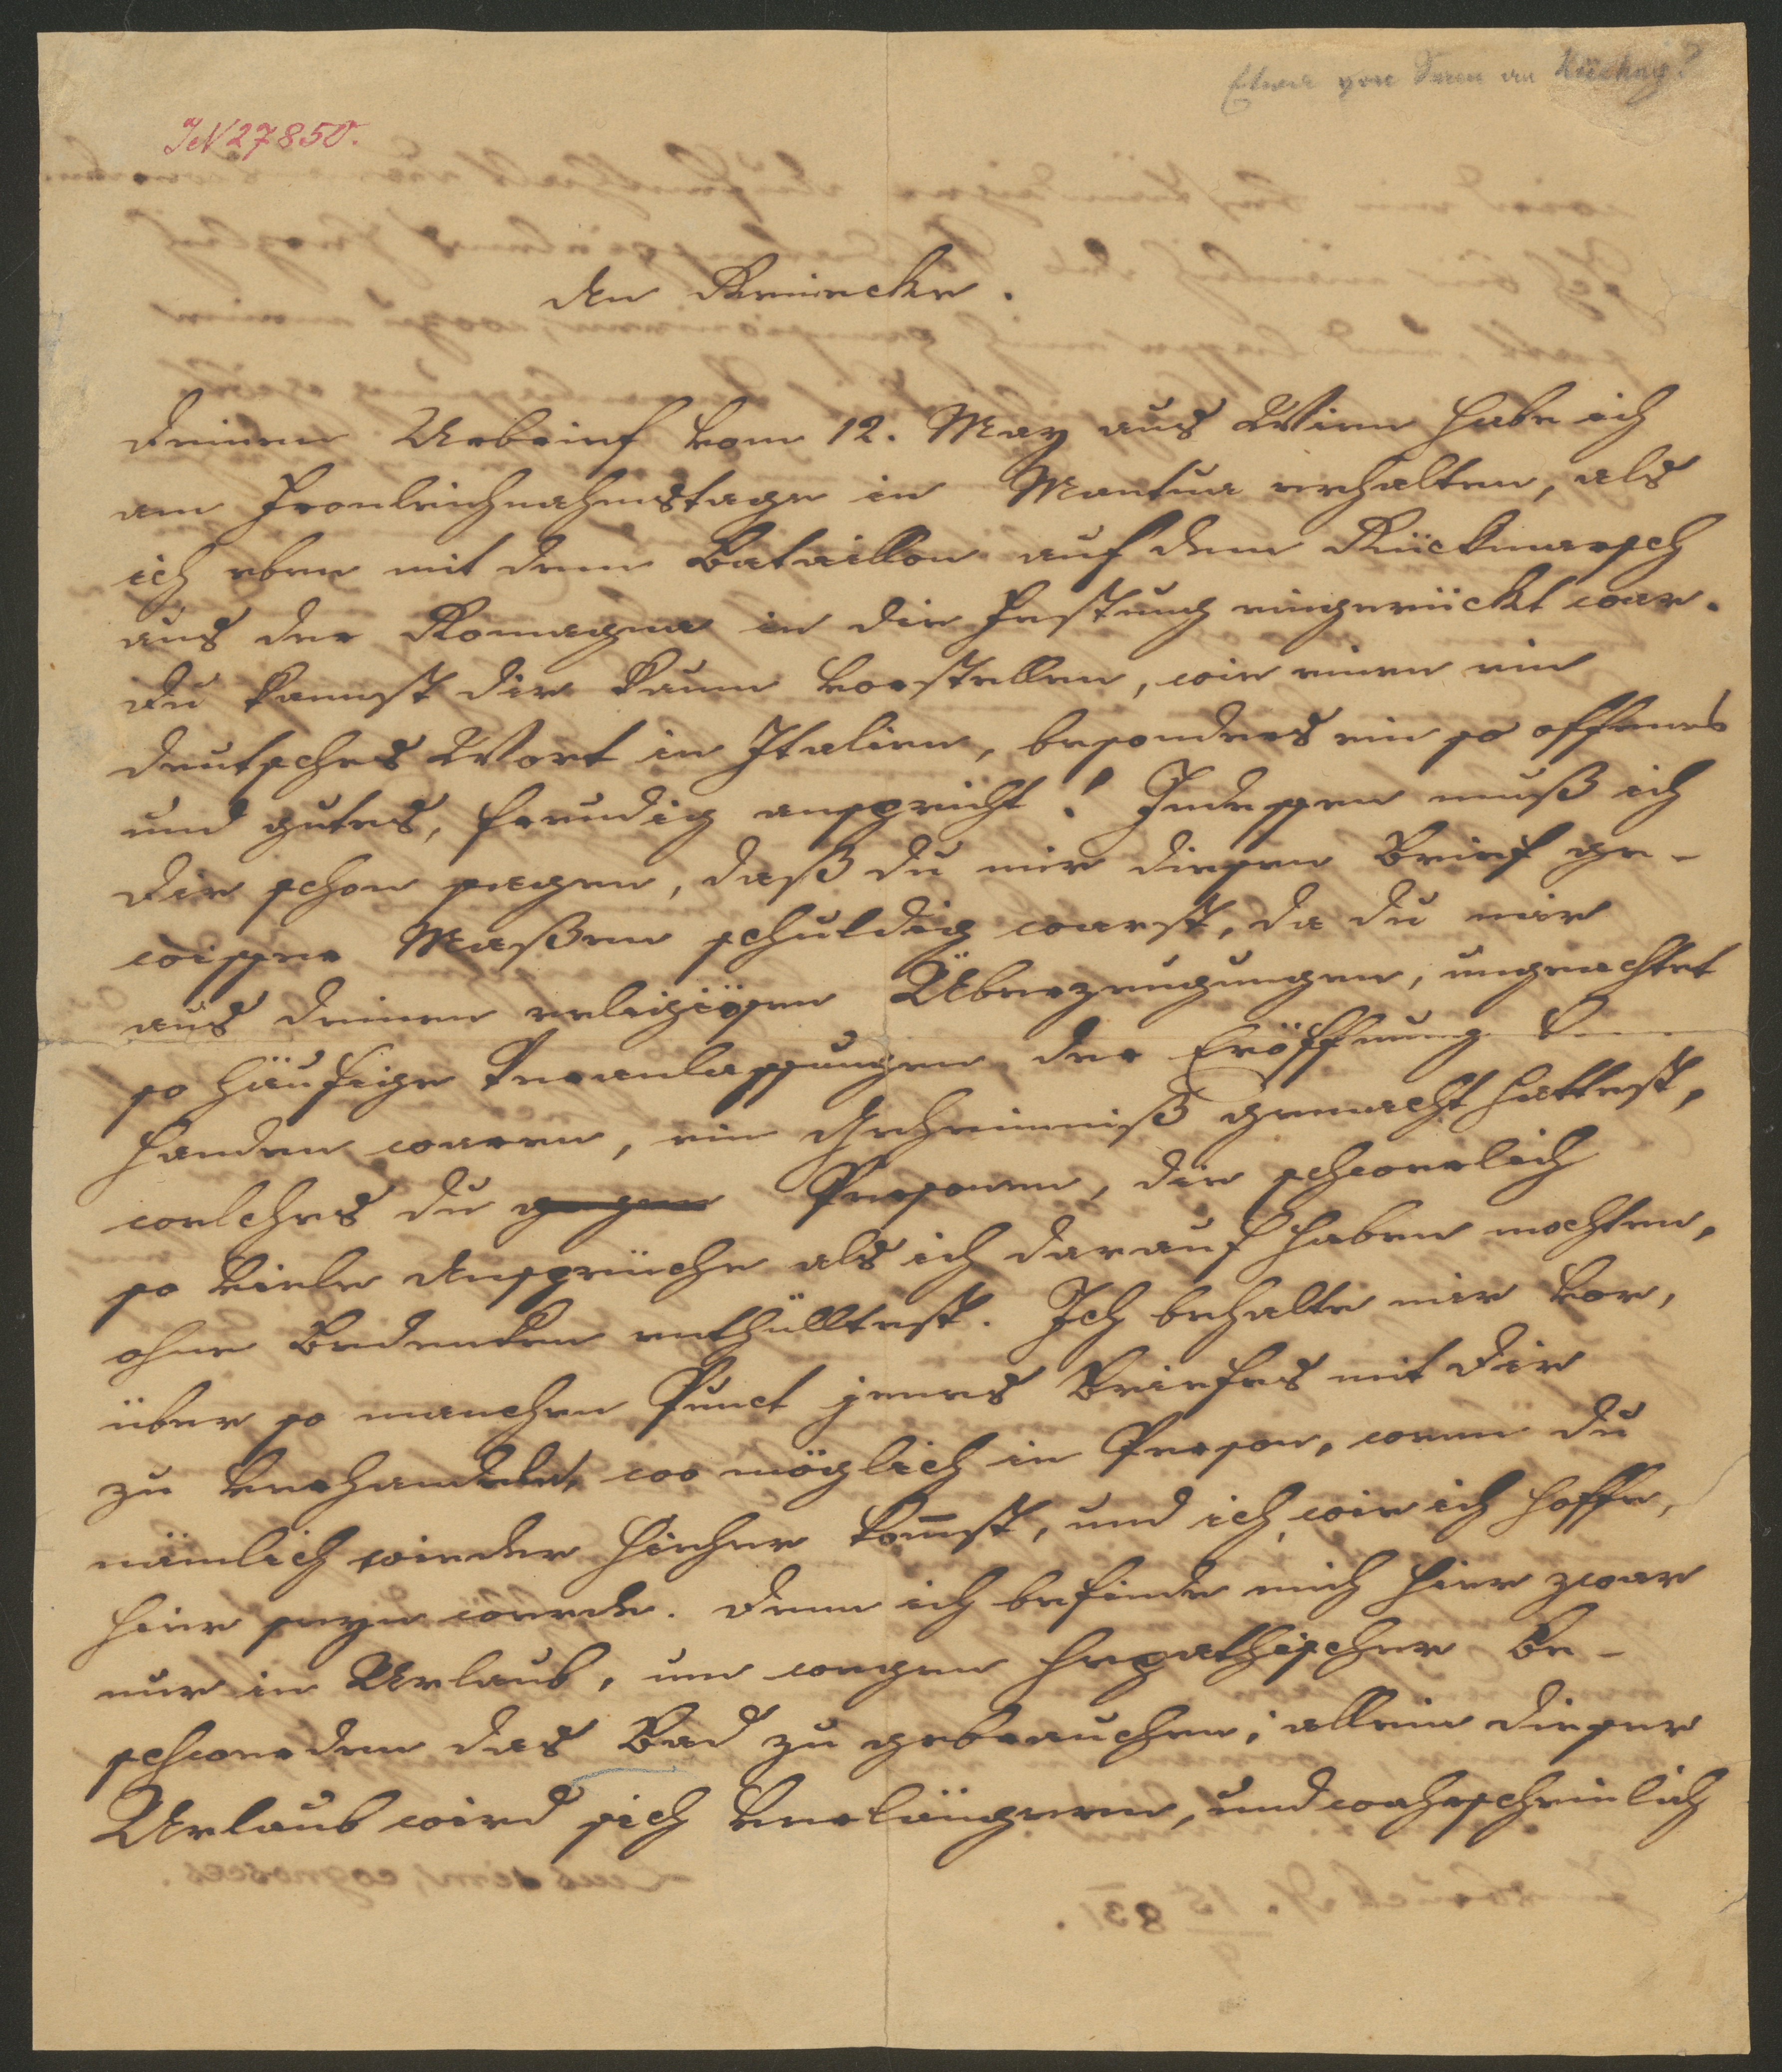 Etwa von Senn an
IN 27850.
An Reinecke.
Deinen Urbrief vom 12. May aus Wien habe ich
am Fronleichnahmstage in Mantua erhalten, als
ich eben mit dem Bataillon auf dem Rückmarsch
aus der Romagna in die Festung eingerückt war.
Du kannst dir kaum vorstellen, wie einen ein
deutsches Wort in Italien, besonders ein so offenes
und gutes, freudig anspricht! Indessen muß ich
dir schon sagen, daß du mir diesen Brief ge-
wisser Maßen schuldig warst, da du mir
aus deinen religiösen Überzeugungen, ungeachtet
so häufige Veranlassungen der Eröffnung
handen waren, ein Geheimniß gemacht hattest,
welches du gegen Personen, die schwerlich
so viele Ansprüche als ich darauf haben mochten,
ohne Bedenken enthülltest. Ich behalte mir vor,
über so manchen Punct jenes Briefes mit dir
zu verhandeln, wo möglich in Person, wenn du
nämlich wieder hieher kom̅st, und ich, wie ich hoffe,
hier seyn werde. Denn ich befinde mich hier zwar
nur in Urlaub, um wegen hepathischer Be-
schwerden das Bad zu gebrauchen; allein dieser
Urlaub wird sich verlängern, und wahrscheinlich